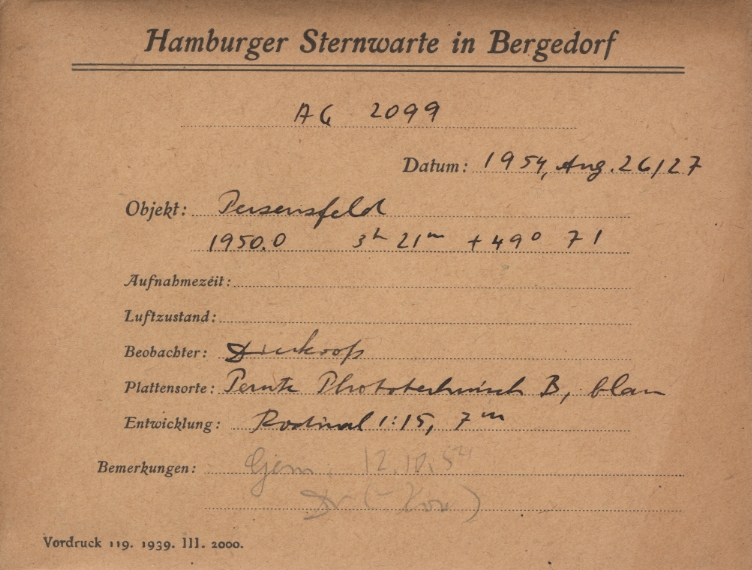 Hamburger Sternwarte in Bergedorf
AG 2099
Datum: 1954, Aug. 26/27
Objekt: Perseusfeld
1950.0 3h 21m +49° 71
Aufnahmezeit:
Luftzustand:
Beobachter: Dieckvoss
Plattensorte: Perutz Phototechnisch B, blau
Entwicklung: Rodinal 1:15, 7m
Bemerkungen: Gem. 12.10.54
Vordruck 119. 1939. III. 2000.